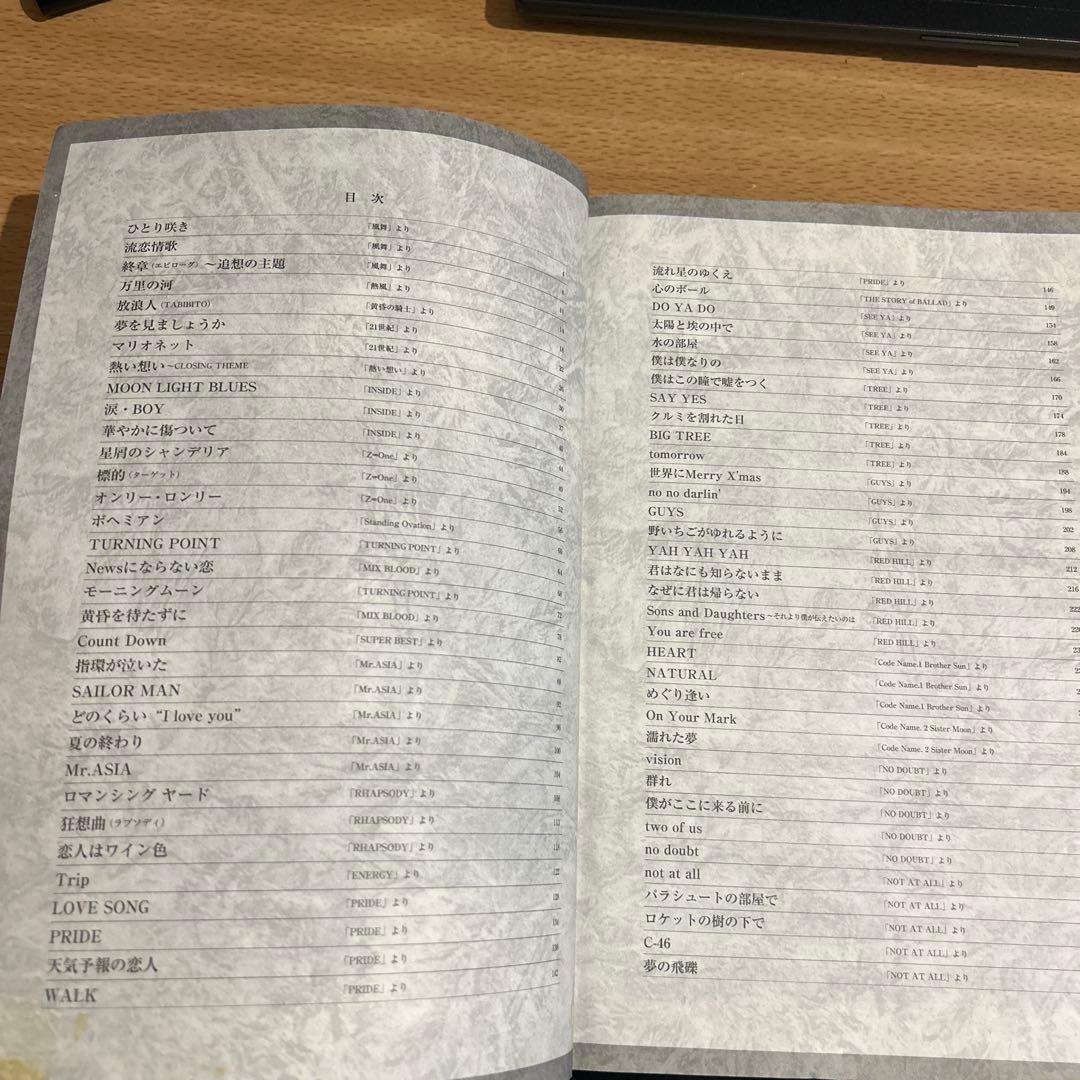 目 次
ひとり咲き 「風舞」より
流恋情歌 「風舞」より 4
終章(エピローグ)～追想の主題 「風舞」より
万里の河 「熱風」より
放浪人(TABIBITO) 「黄昏の騎士」より 14
夢を見ましょうか 「21世紀」より 18
マリオネット 「21世紀」より 22
熱い想い~CLOSING THEME 「熱い想い」より
MOON LIGHT BLUES 「INSIDE」より
涙・BOY 「INSIDE」より
華やかに傷ついて 「INSIDE」より
星屑のシャンデリア 「Z=One」より
標的(ターゲット) 「Z=One」より
オンリー・ロンリー 「Z=One」より 52
ボヘミアン 「Standing Ovation」より
TURNING POINT 「TURNING POINT」より
Newsにならない恋 「MIX BLOOD」より 64
モーニングムーン 「TURNING POINT」より 68
黄昏を待たずに 「MIX BLOOD」より 72
Count Down 「SUPER BEST」より 78
指環が泣いた 「Mr.ASIA」より 82
SAILOR MAN 「Mr.ASIA」より 88
どのくらい “I love you” 「Mr.ASIA」より 92
夏の終わり 「Mr.ASIA」より 96
Mr.ASIA 「Mr.ASIA」より 100
ロマンシング ヤード 「RHAPSODY」より 104
狂想曲(ラプソディ) 「RHAPSODY」より 108
恋人はワイン色 「RHAPSODY」より 112
Trip 「ENERGY」より 118
LOVE SONG 「PRIDE」より 122
PRIDE 「PRIDE」より 128
天気予報の恋人 「PRIDE」より 134
WALK 「PRIDE」より 138
142
流れ星のゆくえ 「PRIDE」より 146
心のボール 「THE STORY of BALLAD」より 149
DO YA DO 「SEE YA」より 154
太陽と埃の中で 「SEE YA」より 158
水の部屋 「SEE YA」より 162
僕は僕なりの 「SEE YA」より 166
僕はこの瞳で嘘をつく 「TREE」より 170
SAY YES 「TREE」より 174
クルミを割れた日 「TREE」より 178
BIG TREE 「TREE」より 184
tomorrow 「TREE」より 188
世界にMerry X'mas 「GUYS」より 194
no no darlin' 「GUYS」より 198
GUYS 「GUYS」より 202
野いちごがゆれるように 「GUYS」より 208
YAH YAH YAH 「RED HILL」より 212
君はなにも知らないまま 「RED HILL」より 216
なぜに君は帰らない 「RED HILL」より 222
Sons and Daughters~それより僕が伝えたいのは 「RED HILL」より
You are free 「RED HILL」より
HEART 「Code Name.1 Brother Sun」より
NATURAL 「Code Name.1 Brother Sun」より
めぐり逢い 「Code Name.1 Brother Sun」より
On Your Mark 「Code Name. 2 Sister Moon」より
濡れた夢 「Code Name. 2 Sister Moon」より
vision 「NO DOUBT」より
群れ 「NO DOUBT」より
僕がここに来る前に 「NO DOUBT」より
two of us 「NO DOUBT」より
no doubt 「NO DOUBT」より
not at all 「NOT AT ALL」より
パラシュートの部屋で 「NOT AT ALL」より
ロケットの樹の下で 「NOT AT ALL」より
C-46 「NOT AT ALL」より
夢の飛礫 「NOT AT ALL」より